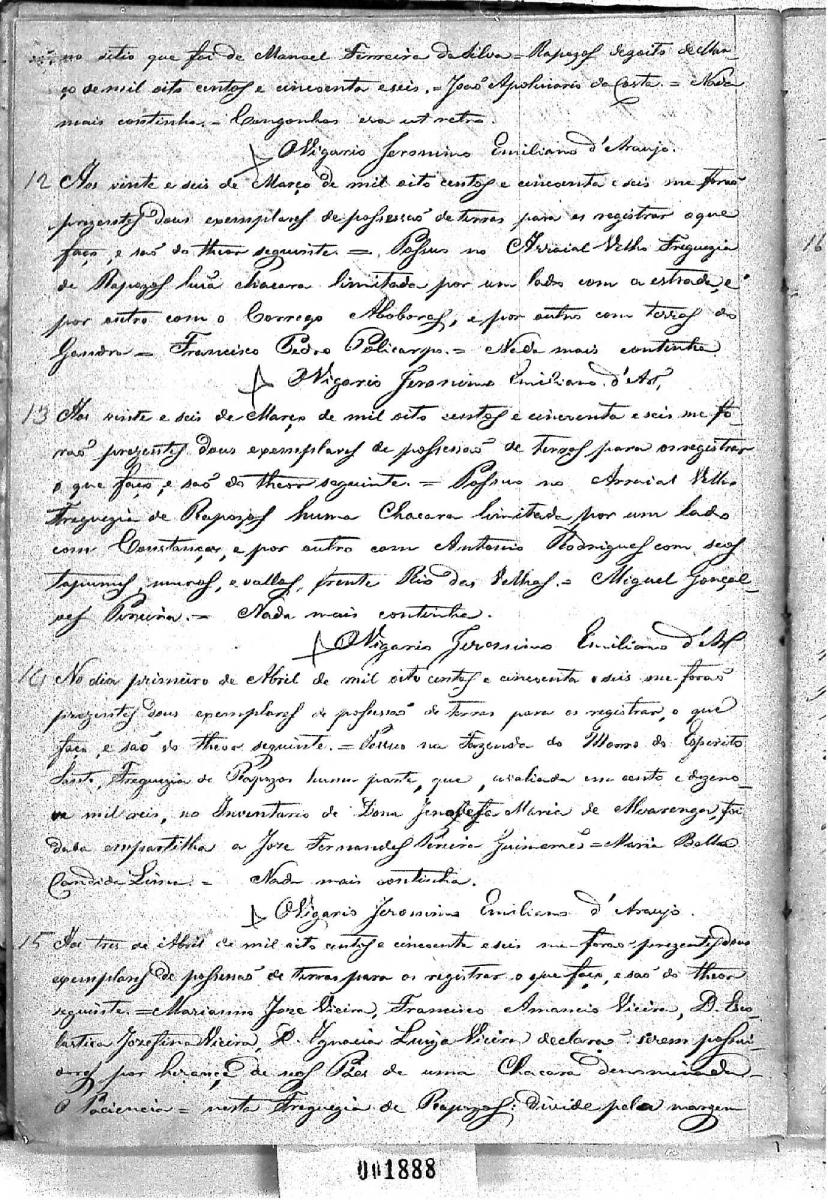 no sitio que foi de Manoel Ferreira da Silva = Rapozos dezoito de Mar-
ço de mil oito centos e cincoenta e seis. = João Apolinario da Costa. = Nada
mais continha. = Congonhas era ut retro.
O Vigario Jeronimo Emiliano d'Araujo.
12 Aos vinte e seis de Março de mil oito centos e cincoenta e seis me forão
prezentes dous exemplares de possessão de terras para os registrar o que
faço, e são do theor seguinte = Possuo no Arraial Velho Freguezia
de Rapozos huã chacara limitada por um lado com a estrada, e
por outro com o Corrego Aboboras, e por outro com terras do
Gandra = Francisco Pedro Policarpo. = Nada mais continha
O Vigario Jeronimo Emiliano d'Ar.
13 Aos vinte e seis de Março de mil oito centos e cincoenta e seis me fo-
rão prezentes dous exemplares de possessão de terras para os registrar
o que faço, e são do theor seguinte. = Possuo no Arraial Velho
Freguezia de Rapozos huma Chacara limitada por um lado
com Constança, e por outro com Antonio Rodrigues com seos
tapumes, muros, e vallos, frente Rio das Velhas. = Miguel Gonçal-
ves Pereira. = Nada mais continha.
O Vigario Jeronimo Emiliano d'Ar
14 No dia primeiro de Abril de mil oito centos e cincoenta e seis me forão
prezentes dous exemplares de possessão de terras para os registrar, o que
faço, e são do theor seguinte. = Possuo na Fazenda do Morro do Espirito
Santo, Freguezia de Rapozos huma parte, que, avaliada em cento e dezeno-
ve mil reis, no Inventario de Dona Jenovefa Maria de Alvarenga, foi
dada empartilha a Jose Fernandes Pereira Guimarães = Maria Balbª
Candida Lima. = Nada mais continha.
O Vigario Jeronimo Emiliano d'Araujo.
15 Aos tres de Abril de mil oito centos e cincoenta e seis me forão prezentes dous
exemplares de possessão de terras para os registrar o que faço, e são do theor
seguinte. = Marianno Joze Vieira, Francisco Amancio Vieira, D. Esco-
lastica Jozefina Vieira, D. Ignacia Luiza Vieira declarão serem possui-
dores por herança de nos Pães de uma Chacara denominada
O Paciencia = nesta Freguezia de Rapozos: divide pela margem
16
001888